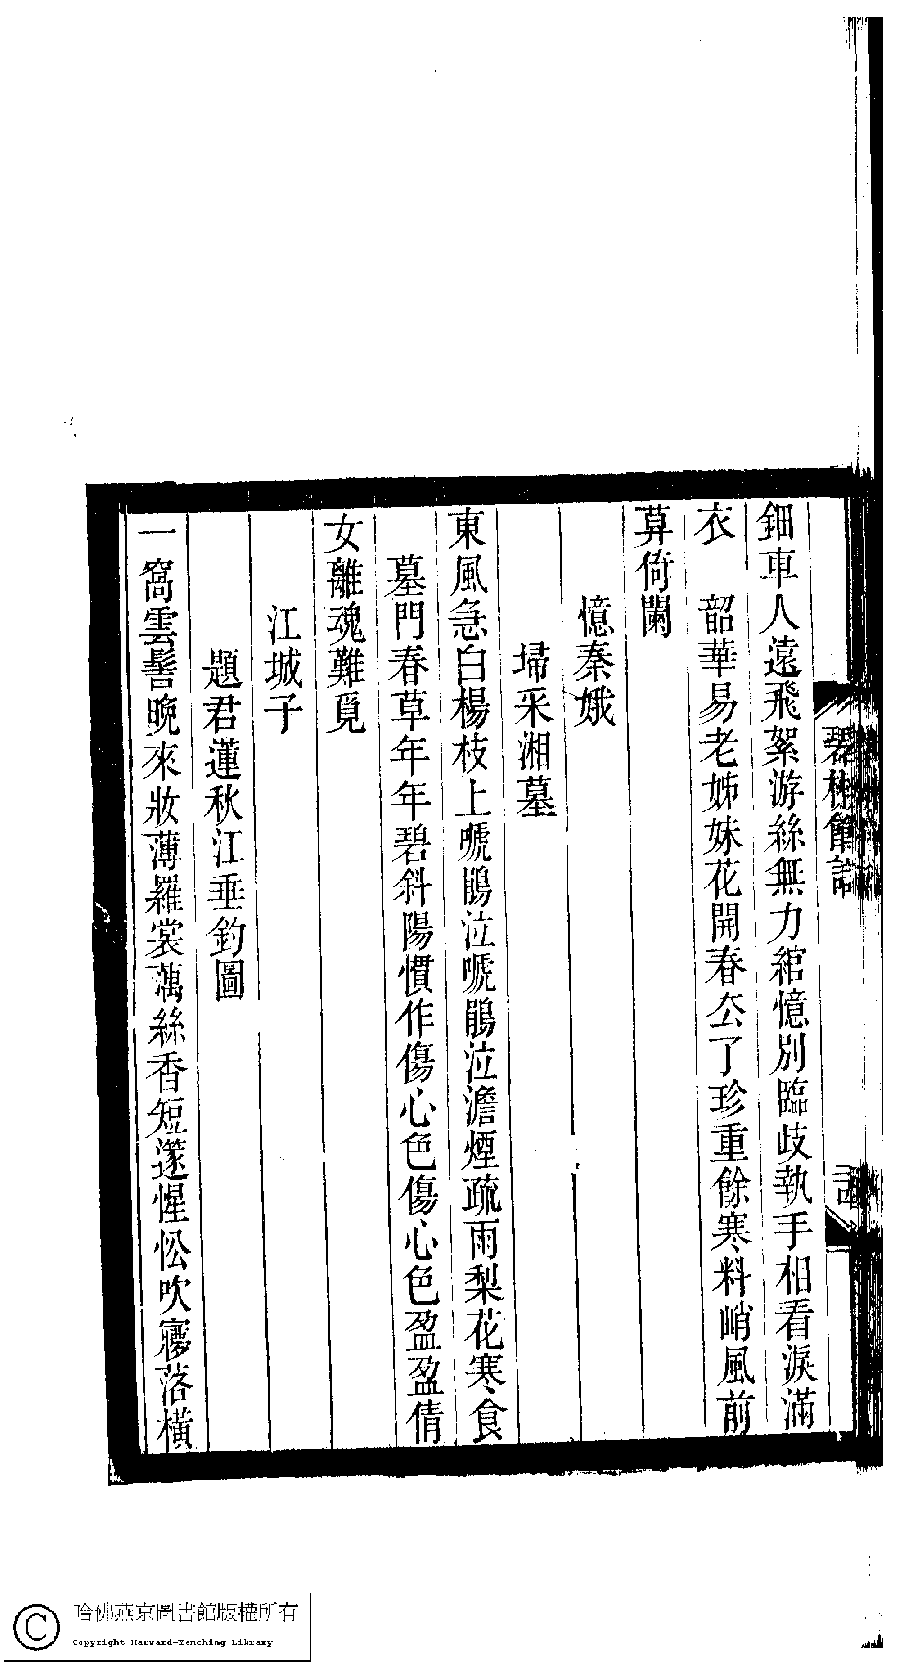 鈿車人遠飛絮游絲無力綰憶別臨歧執手相看淚滿
衣　韶華易老姊妹花開春厺了珍重餘寒料峭風前
莫倚闌
憶秦娥
埽采湘墓
東風急白楊枝上嗁鵑泣嗁鵑泣澹煙疏雨棃花寒食
墓門春草年年碧斜陽慣作傷心色傷心色盈盈倩
女離魂難覓
江城子
題君蓮秋江垂釣圖
一窩雲髻晚來妝薄羅裳藕絲香短篴惺忪吹寤落橫
哈佛燕京圖書館版權所有
Copyright Harvard-Yenching Library